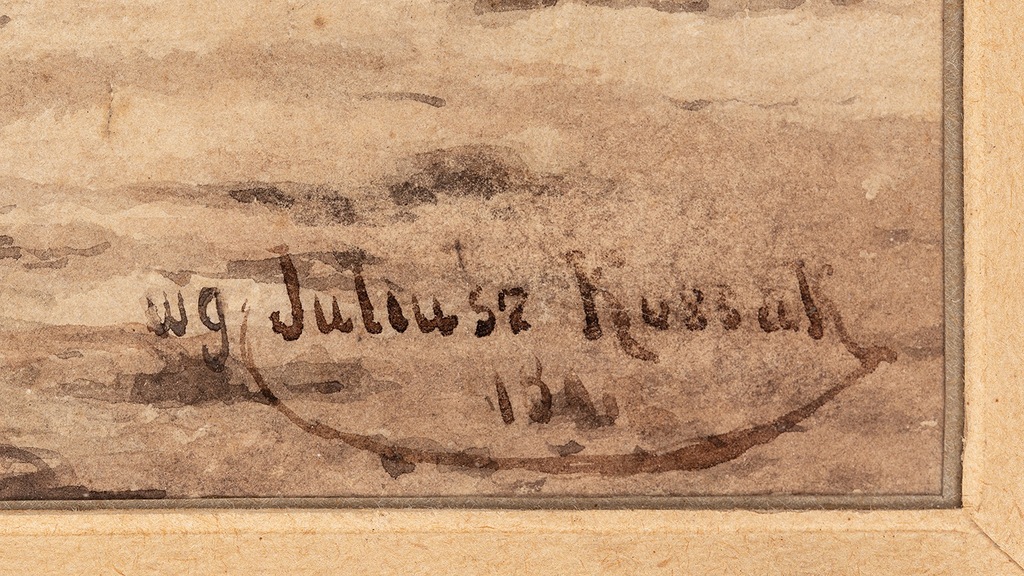 wg Juliusz Kossak